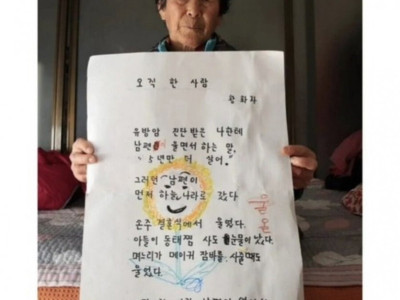 오직 한 사람
황화자
유방암 진단 받은 나한테
남편이 울면서 하는 말,
"5년만 더 살어."
그러던 남편이
먼저 하늘나라로 갔다.
손주 결혼식에서 울었다.
아들이 동태찜 사도 눈물이 났다.
며느리가 메이커 잠바를 사줄때도
울었다.